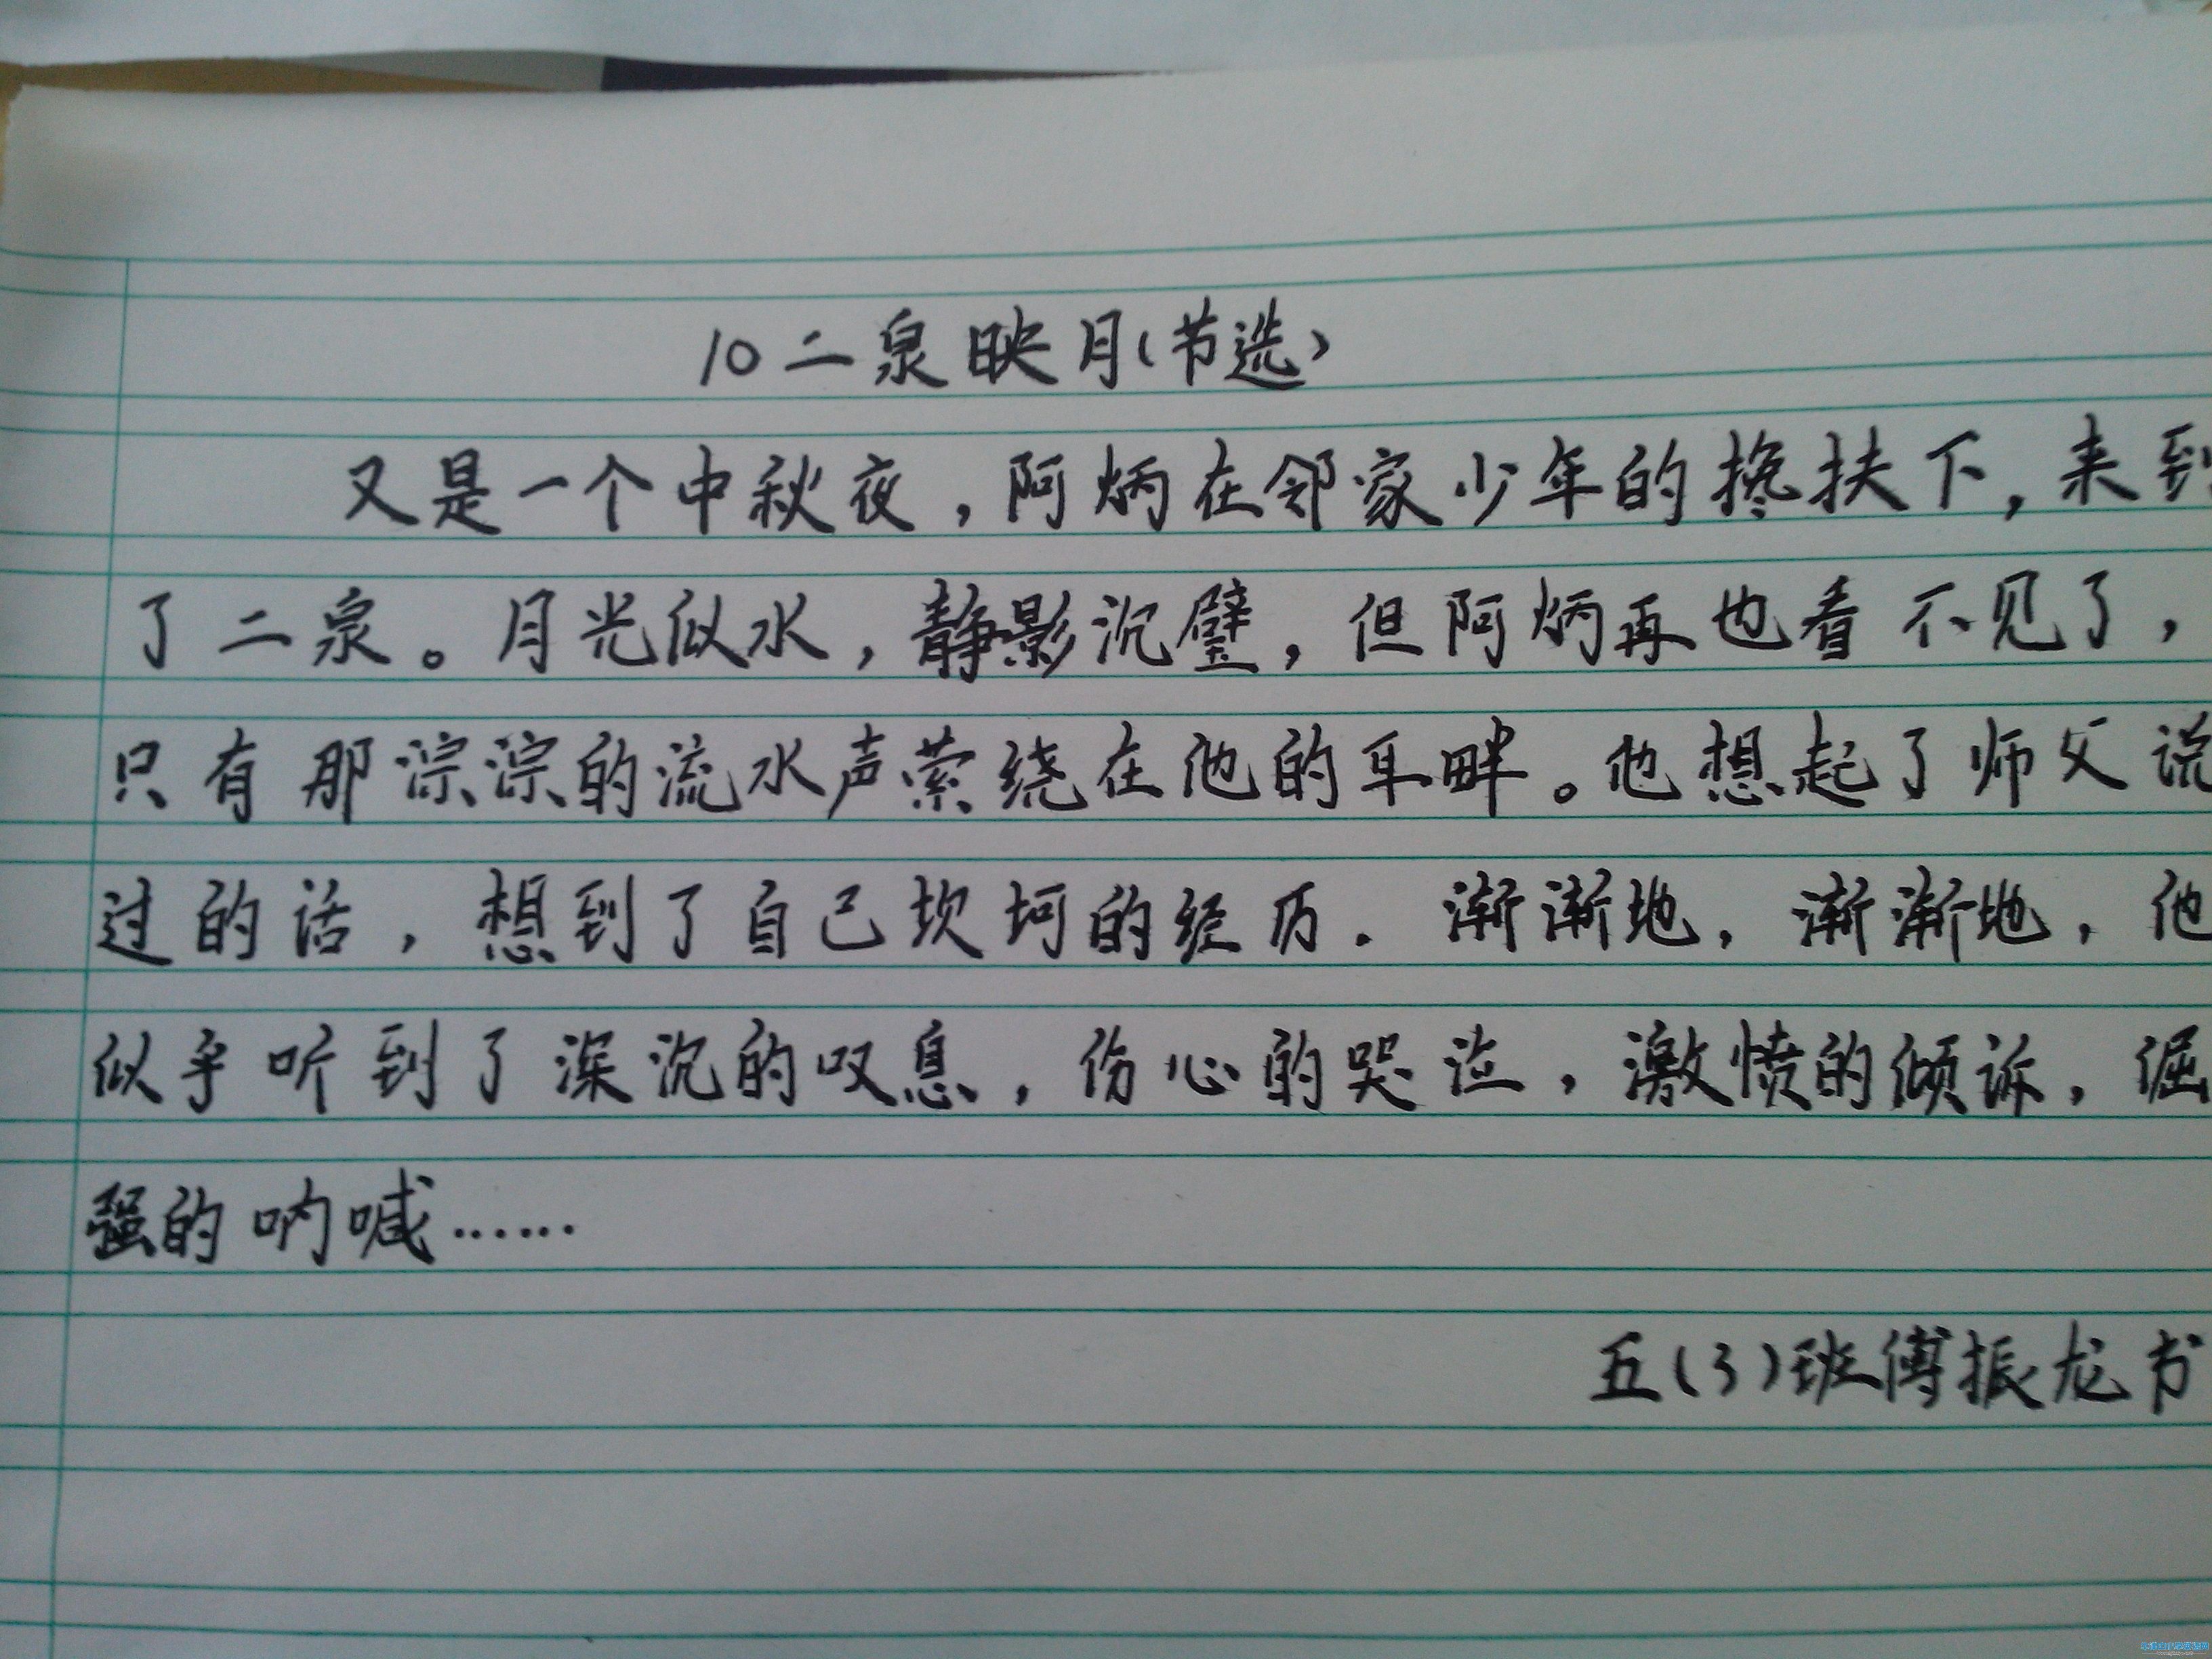 10 二泉映月(节选)
又是一个中秋夜,阿炳在邻家少年的搀扶下,来到
了二泉。月光似水,静影沉璧,但阿炳再也看不见了,
只有那淙淙的流水声萦绕在他的耳畔。他想起了师父说
过的话,想到了自己坎坷的经历.渐渐地,渐渐地,他
似乎听到了深沉的叹息,伤心的哭泣,激愤的倾诉,倔
强的呐喊……
五(3)班傅振龙书